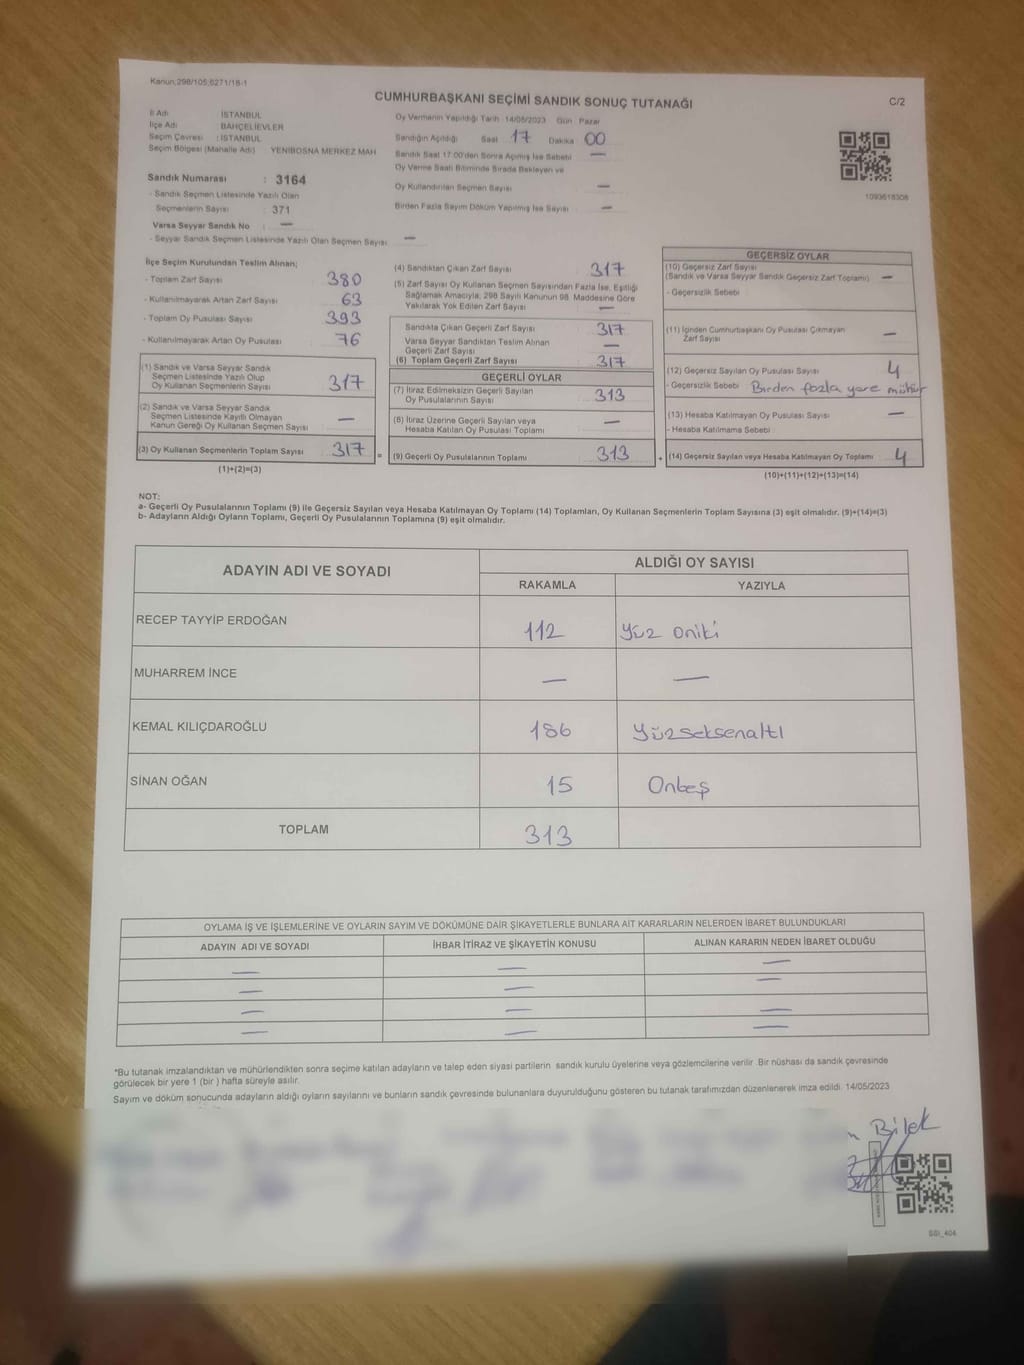 Kanun:298/105;6271/18-1
CUMHURBAŞKANI SEÇİMİ SANDIK SONUÇ TUTANAĞI
C/2
İl Adı : İSTANBUL
İlçe Adı : BAHÇELİEVLER
Seçim Çevresi : İSTANBUL
Seçim Bölgesi (Mahalle Adı) : YENİBOSNA MERKEZ MAH
Sandık Numarası : 3164
- Sandık Seçmen Listesinde Yazılı Olan
Seçmenlerin Sayısı : 371
Varsa Seyyar Sandık No : —
- Seyyar Sandık Seçmen Listesinde Yazılı Olan Seçmen Sayısı —
Oy Vermenin Yapıldığı Tarih 14/05/2023 Gün Pazar
Sandığın Açıldığı Saat 17 Dakika 00
Sandık Saat 17:00'den Sonra Açılmış İse Sebebi —
Oy Verme Saati Bitiminde Sırada Bekleyen ve
Oy Kullandırılan Seçmen Sayısı —
Birden Fazla Sayım Döküm Yapılmış İse Sayısı —
1093618308
İlçe Seçim Kurulundan Teslim Alınan;
- Toplam Zarf Sayısı 380
- Kullanılmayarak Artan Zarf Sayısı 63
- Toplam Oy Pusulası Sayısı 393
- Kullanılmayarak Artan Oy Pusulası 76
(1) Sandık ve Varsa Seyyar Sandık
Seçmen Listesinde Yazılı Olup
Oy Kullanan Seçmenlerin Sayısı 317
(2) Sandık ve Varsa Seyyar Sandık
Seçmen Listesinde Kayıtlı Olmayan
Kanun Gereği Oy Kullanan Seçmen Sayısı —
(3) Oy Kullanan Seçmenlerin Toplam Sayısı 317
(1)+(2)=(3)
=
(4) Sandıktan Çıkan Zarf Sayısı 317
(5) Zarf Sayısı Oy Kullanan Seçmen Sayısından Fazla İse, Eşitliği
Sağlamak Amacıyla, 298 Sayılı Kanunun 98. Maddesine Göre
Yakılarak Yok Edilen Zarf Sayısı —
Sandıkta Çıkan Geçerli Zarf Sayısı 317
Varsa Seyyar Sandıktan Teslim Alınan
Geçerli Zarf Sayısı —
(6) Toplam Geçerli Zarf Sayısı 317
GEÇERLİ OYLAR
(7) İtiraz Edilmeksizin Geçerli Sayılan
Oy Pusulalarının Sayısı 313
(8) İtiraz Üzerine Geçerli Sayılan veya
Hesaba Katılan Oy Pusulası Toplamı —
(9) Geçerli Oy Pusulalarının Toplamı 313
+
GEÇERSİZ OYLAR
(10) Geçersiz Zarf Sayısı
(Sandık ve Varsa Seyyar Sandık Geçersiz Zarf Toplamı) —
- Geçersizlik Sebebi
(11) İçinden Cumhurbaşkanı Oy Pusulası Çıkmayan
Zarf Sayısı —
(12) Geçersiz Sayılan Oy Pusulası Sayısı 4
- Geçersizlik Sebebi Birden fazla yere mühür
(13) Hesaba Katılmayan Oy Pusulası Sayısı —
- Hesaba Katılmama Sebebi
(14) Geçersiz Sayılan veya Hesaba Katılmayan Oy Toplamı 4
(10)+(11)+(12)+(13)=(14)
NOT:
a- Geçerli Oy Pusulalarının Toplamı (9) ile Geçersiz Sayılan veya Hesaba Katılmayan Oy Toplamı (14) Toplamları, Oy Kullanan Seçmenlerin Toplam Sayısına (3) eşit olmalıdır. (9)+(14)=(3)
b- Adayların Aldığı Oyların Toplamı, Geçerli Oy Pusulalarının Toplamına (9) eşit olmalıdır.
ADAYIN ADI VE SOYADI
ALDIĞI OY SAYISI
RAKAMLA YAZIYLA
RECEP TAYYİP ERDOĞAN 112 Yüz oniki
MUHARREM İNCE — —
KEMAL KILIÇDAROĞLU 186 Yüzseksenaltı
SİNAN OĞAN 15 Onbeş
TOPLAM 313
OYLAMA İŞ VE İŞLEMLERİNE VE OYLARIN SAYIM VE DÖKÜMÜNE DAİR ŞİKAYETLERLE BUNLARA AİT KARARLARIN NELERDEN İBARET BULUNDUKLARI
ADAYIN ADI VE SOYADI İHBAR İTİRAZ VE ŞİKAYETİN KONUSU ALINAN KARARIN NEDEN İBARET OLDUĞU
— — —
— — —
— — —
— — —
*Bu tutanak imzalandıktan ve mühürlendikten sonra seçime katılan adayların ve talep eden siyasi partilerin sandık kurulu üyelerine veya gözlemcilerine verilir. Bir nüshası da sandık çevresinde
görülecek bir yere 1 (bir ) hafta süreyle asılır.
Sayım ve döküm sonucunda adayların aldığı oyların sayılarını ve bunların sandık çevresinde bulunanlara duyurulduğunu gösteren bu tutanak tarafımızdan düzenlenerek imza edildi. 14/05/2023
Bilek
SGI_404